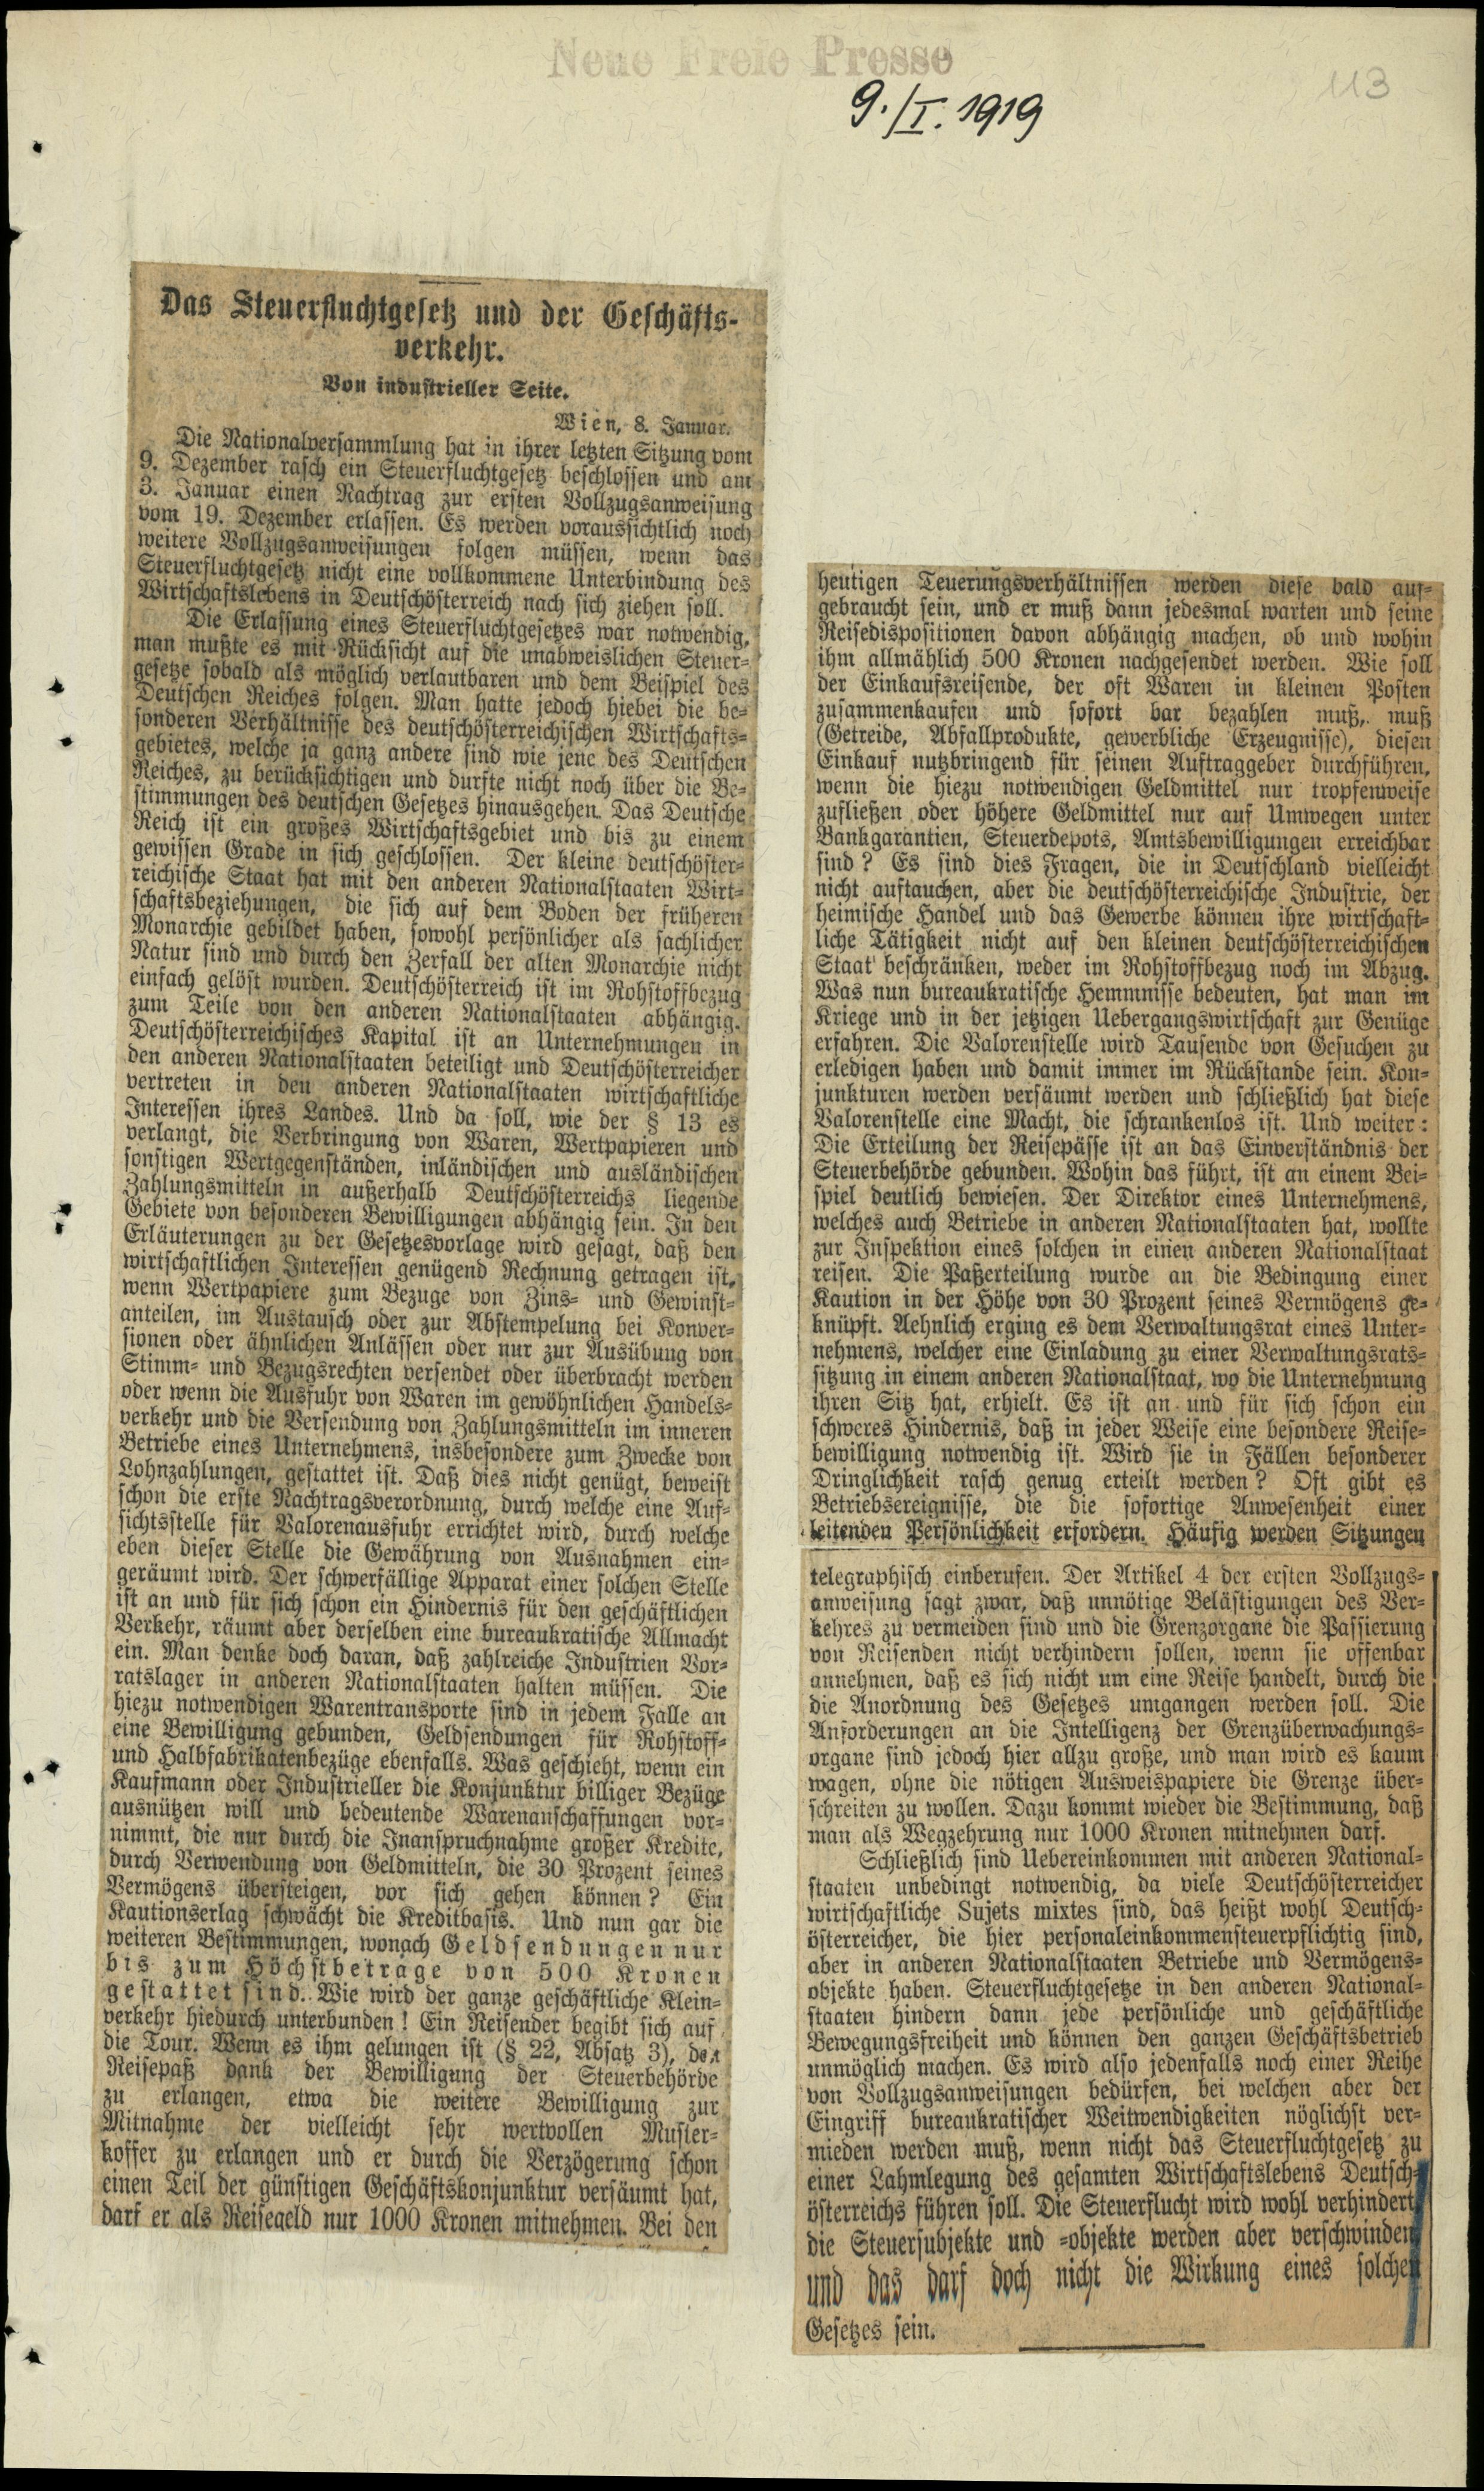 Neue Freie Presse
9./I. 1919
113
Das Steuerfluchtgesetz und der Geschäfts-
verkehr.
Von industrieller Seite.
Wien, 8. Januar.
Die Nationalversammlung hat in ihrer letzten Sitzung vom
9. Dezember rasch ein Steuerfluchtgesetz beschlossen und am
3. Januar einen Nachtrag zur ersten Vollzugsanweisung
vom 19. Dezember erlassen. Es werden voraussichtlich noch
weitere Vollzugsanweisungen folgen müssen, wenn das
Steuerfluchtgesetz nicht eine vollkommene Unterbindung des
Wirtschaftslebens in Deutschösterreich nach sich ziehen soll.
Die Erlassung eines Steuerfluchtgesetzes war notwendig,
man mußte es mit Rücksicht auf die unabweislichen Steuer-
gesetze sobald als möglich verlautbaren und dem Beispiel des
Deutschen Reiches folgen. Man hatte jedoch hiebei die be-
sonderen Verhältnisse des deutschösterreichischen Wirtschafts-
gebietes, welche ja ganz andere sind wie jene des Deutschen
Reiches, zu berücksichtigen und durfte nicht noch über die Be-
stimmungen des deutschen Gesetzes hinausgehen. Das Deutsche
Reich ist ein großes Wirtschaftsgebiet und bis zu einem
gewissen Grade in sich geschlossen. Der kleine deutschöster-
reichische Staat hat mit den anderen Nationalstaaten Wirt-
schaftsbeziehungen, die sich auf dem Boden der früheren
Monarchie gebildet haben, sowohl persönlicher als sachlicher
Natur sind und durch den Zerfall der alten Monarchie nicht
einfach gelöst wurden. Deutschösterreich ist im Rohstoffbezug
zum Teile von den anderen Nationalstaaten abhängig.
Deutschösterreichisches Kapital ist an Unternehmungen in
den anderen Nationalstaaten beteiligt und Deutschösterreicher
vertreten in den anderen Nationalstaaten wirtschaftliche
Interessen ihres Landes. Und da soll, wie der § 13 es
verlangt, die Verbringung von Waren, Wertpapieren und
sonstigen Wertgegenständen, inländischen und ausländischen
Zahlungsmitteln in außerhalb Deutschösterreichs liegende
Gebiete von besonderen Bewilligungen abhängig sein. In den
Erläuterungen zu der Gesetzesvorlage wird gesagt, daß den
wirtschaftlichen Interessen genügend Rechnung getragen ist,
wenn Wertpapiere zum Bezuge von Zins- und Gewinst-
anteilen, im Austausch oder zur Abstempelung bei Konver-
sionen oder ähnlichen Anlässen oder nur zur Ausübung von
Stimm- und Bezugsrechten versendet oder überbracht werden
oder wenn die Ausfuhr von Waren im gewöhnlichen Handels-
verkehr und die Versendung von Zahlungsmitteln im inneren
Betriebe eines Unternehmens, insbesondere zum Zwecke von
Lohnzahlungen, gestattet ist. Daß dies nicht genügt, beweist
schon die erste Nachtragsverordnung, durch welche eine Auf-
sichtsstelle für Valorenausfuhr errichtet wird, durch welche
eben dieser Stelle die Gewährung von Ausnahmen ein-
geräumt wird. Der schwerfällige Apparat einer solchen Stelle
ist an und für sich schon ein Hindernis für den geschäftlichen
Verkehr, räumt aber derselben eine bureaukratische Allmacht
ein. Man denke doch daran, daß zahlreiche Industrien Vor-
ratslager in anderen Nationalstaaten halten müssen. Die
hiezu notwendigen Warentransporte sind in jedem Falle an
eine Bewilligung gebunden, Geldsendungen für Rohstoff-
und Halbfabrikatenbezüge ebenfalls. Was geschieht, wenn ein
Kaufmann oder Industrieller die Konjunktur billiger Bezüge
ausnützen will und bedeutende Warenanschaffungen vor-
nimmt, die nur durch die Inanspruchnahme großer Kredite,
durch Verwendung von Geldmitteln, die 30 Prozent seines
Vermögens übersteigen, vor sich gehen können? Ein
Kautionserlag schwächt die Kreditbasis. Und nun gar die
weiteren Bestimmungen, wonach Geldsendungen nur
bis zum Höchstbetrage von 500 Kronen
gestattet sind. Wie wird der ganze geschäftliche Klein-
verkehr hiedurch unterbunden! Ein Reisender begibt sich auf
die Tour. Wenn es ihm gelungen ist (§ 22, Absatz 3), den
Reisepaß dank der Bewilligung der Steuerbehörde
zu erlangen, etwa die weitere Bewilligung zur
Mitnahme der vielleicht sehr wertvollen Muster-
koffer zu erlangen und er durch die Verzögerung schon
einen Teil der günstigen Geschäftskonjunktur versäumt hat,
darf er als Reisegeld nur 1000 Kronen mitnehmen. Bei den
heutigen Teuerungsverhältnissen werden diese bald auf-
gebraucht sein, und er muß dann jedesmal warten und seine
Reisedispositionen davon abhängig machen, ob und wohin
ihm allmählich 500 Kronen nachgesendet werden. Wie soll
der Einkaufsreisende, der oft Waren in kleinen Posten
zusammenkaufen und sofort bar bezahlen muß, muß
(Getreide, Abfallprodukte, gewerbliche Erzeugnisse), diesen
Einkauf nutzbringend für seinen Auftraggeber durchführen,
wenn die hiezu notwendigen Geldmittel nur tropfenweise
zufließen oder höhere Geldmittel nur auf Umwegen unter
Bankgarantien, Steuerdepots, Amtsbewilligungen erreichbar
sind? Es sind dies Fragen, die in Deutschland vielleicht
nicht auftauchen, aber die deutschösterreichische Industrie, der
heimische Handel und das Gewerbe können ihre wirtschaft-
liche Tätigkeit nicht auf den kleinen deutschösterreichischen
Staat beschränken, weder im Rohstoffbezug noch im Abzug.
Was nun bureaukratische Hemmnisse bedeuten, hat man im
Kriege und in der jetzigen Uebergangswirtschaft zur Genüge
erfahren. Die Valorenstelle wird Tausende von Gesuchen zu
erledigen haben und damit immer im Rückstande sein. Kon-
junkturen werden versäumt werden und schließlich hat diese
Valorenstelle eine Macht, die schrankenlos ist. Und weiter:
Die Erteilung der Reisepässe ist an das Einverständnis der
Steuerbehörde gebunden. Wohin das führt, ist an einem Bei-
spiel deutlich bewiesen. Der Direktor eines Unternehmens,
welches auch Betriebe in anderen Nationalstaaten hat, wollte
zur Inspektion eines solchen in einen anderen Nationalstaat
reisen. Die Paßerteilung wurde an die Bedingung einer
Kaution in der Höhe von 30 Prozent seines Vermögens ge-
knüpft. Aehnlich erging es dem Verwaltungsrat eines Unter-
nehmens, welcher eine Einladung zu einer Verwaltungsrats-
sitzung in einem anderen Nationalstaat, wo die Unternehmung
ihren Sitz hat, erhielt. Es ist an und für sich schon ein
schweres Hindernis, daß in jeder Weise eine besondere Reise-
bewilligung notwendig ist. Wird sie in Fällen besonderer
Dringlichkeit rasch genug erteilt werden? Oft gibt es
Betriebsereignisse, die die sofortige Anwesenheit einer
leitenden Persönlichkeit erfordern. Häufig werden Sitzungen
telegraphisch einberufen. Der Artikel 4 der ersten Vollzugs-
anweisung sagt zwar, daß unnötige Belästigungen des Ver-
kehres zu vermeiden sind und die Grenzorgane die Passierung
von Reisenden nicht verhindern sollen, wenn sie offenbar
annehmen, daß es sich nicht um eine Reise handelt, durch die
die Anordnung des Gesetzes umgangen werden soll. Die
Anforderungen an die Intelligenz der Grenzüberwachungs-
organe sind jedoch hier allzu große, und man wird es kaum
wagen, ohne die nötigen Ausweispapiere die Grenze über-
schreiten zu wollen. Dazu kommt wieder die Bestimmung, daß
man als Wegzehrung nur 1000 Kronen mitnehmen darf.
Schließlich sind Uebereinkommen mit anderen National-
staaten unbedingt notwendig, da viele Deutschösterreicher
wirtschaftliche Sujets mixtes sind, das heißt wohl Deutsch-
österreicher, die hier personaleinkommensteuerpflichtig sind,
aber in anderen Nationalstaaten Betriebe und Vermögens-
objekte haben. Steuerfluchtgesetze in den anderen National-
staaten hindern dann jede persönliche und geschäftliche
Bewegungsfreiheit und können den ganzen Geschäftsbetrieb
unmöglich machen. Es wird also jedenfalls noch einer Reihe
von Vollzugsanweisungen bedürfen, bei welchen aber der
Eingriff bureaukratischer Weitwendigkeiten nöglichst ver-
mieden werden muß, wenn nicht das Steuerfluchtgesetz zu
einer Lahmlegung des gesamten Wirtschaftslebens Deutsch-
österreichs führen soll. Die Steuerflucht wird wohl verhindert,
die Steuersubjekte und -objekte werden aber verschwinden
und das darf doch nicht die Wirkung eines solchen
Gesetzes sein.